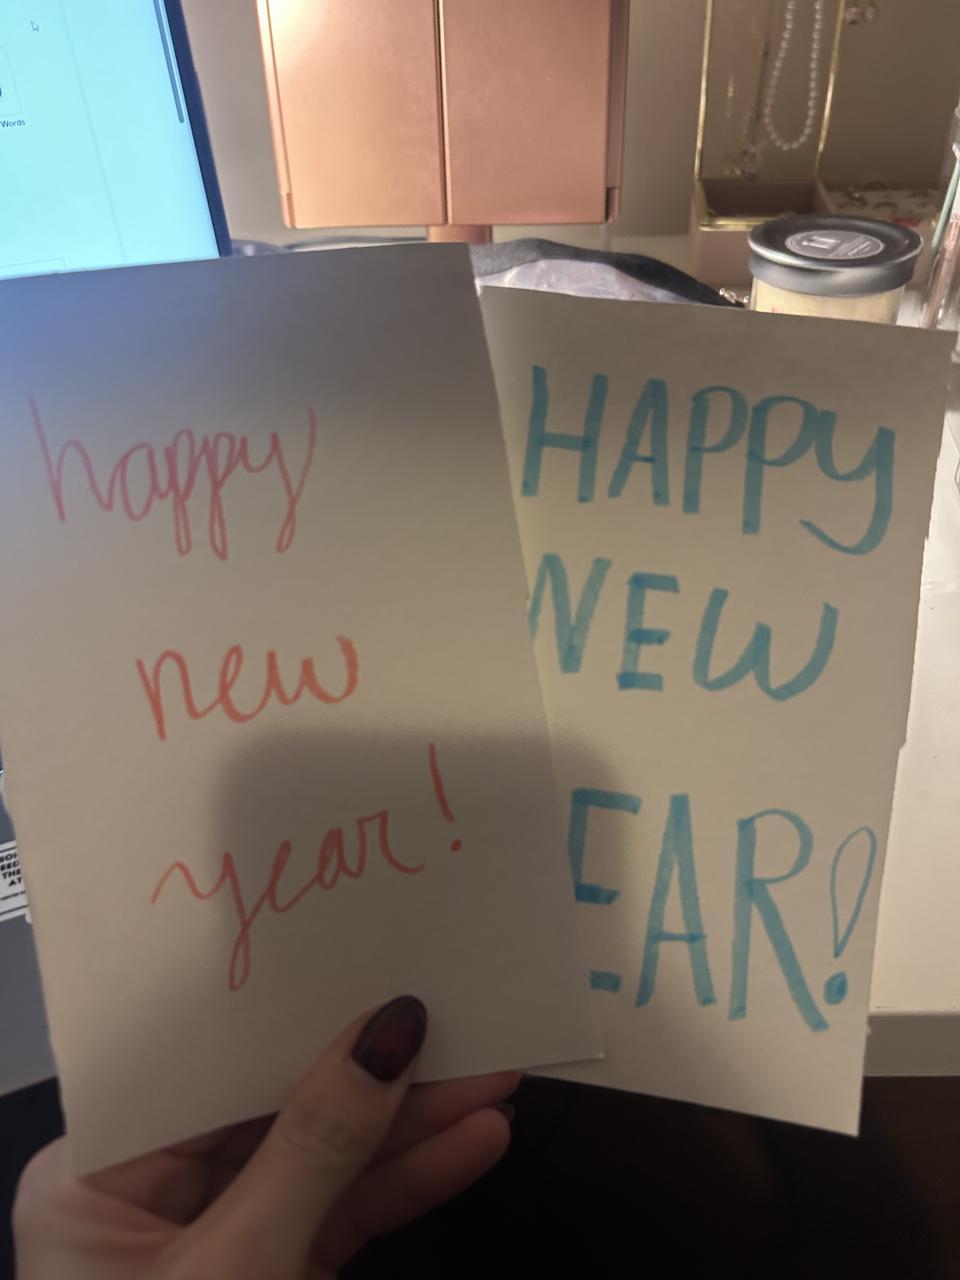 Words
happy
new
year!
HAPPY
NEW
EAR!